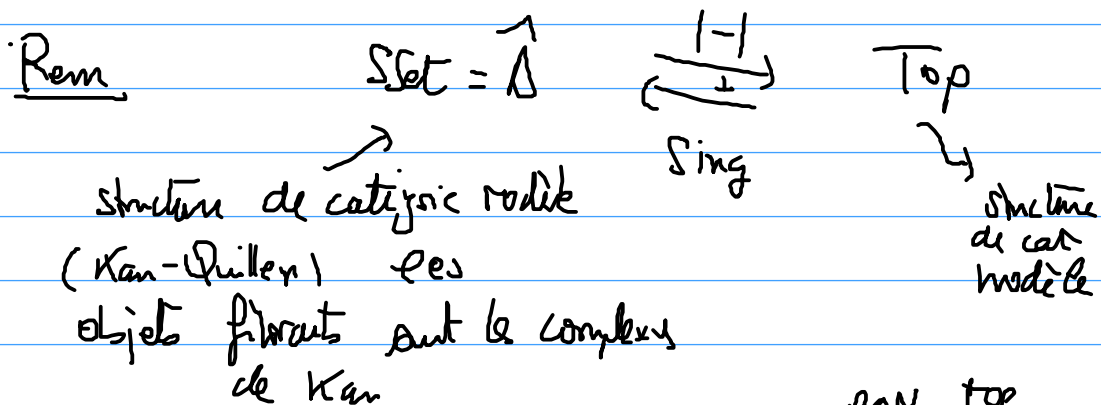 Rem SSet = Δ̂ |-| ⊥ Top
Sing
structure de catégorie modèle
(Kan-Quillen) les
objets fibrants sont les complexes
de Kan
structure
de cat
modèle
top